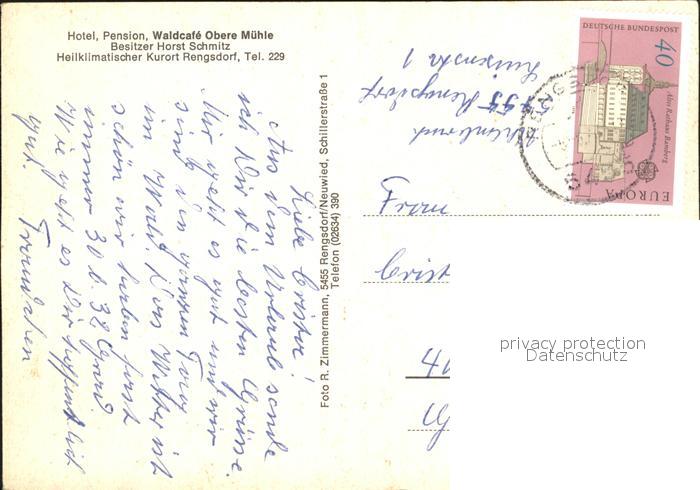 Hotel, Pension, Waldcafé Obere Mühle
Besitzer Horst Schmitz
Heilklimatischer Kurort Rengsdorf, Tel. 229
Liebe Crista!
Aus dem Urlaub sende
ich Dir die besten Grüsse.
Mir geht es gut und wir
sind den ganzen Tag
im Wald. Das Wetter ist
schön wir haben fast
immer 30 b. 32 Grad.
Wie geht es Dir hoffentlich
gut.
Foto R. Zimmermann, 5455 Rengsdorf/Neuwied, Schillerstraße 1
Telefon (02634) 390
5455 Rengsdorf
1
Frau
Crist
DEUTSCHE BUNDESPOST
40
Altes Rathaus Bamberg
EUROPA
privacy protection
Datenschutz